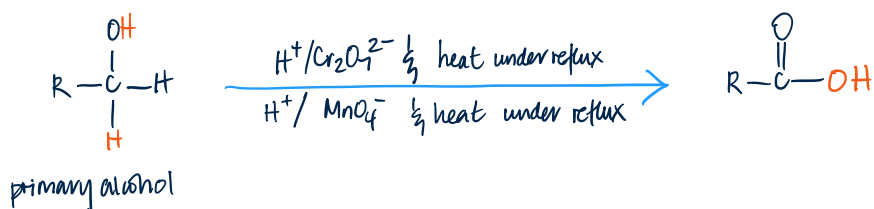 OH
R – C – H
H
primary alcohol
H⁺/Cr₂O₇²⁻ & heat under reflux
H⁺/ MnO₄⁻ & heat under reflux
O
R – C – OH